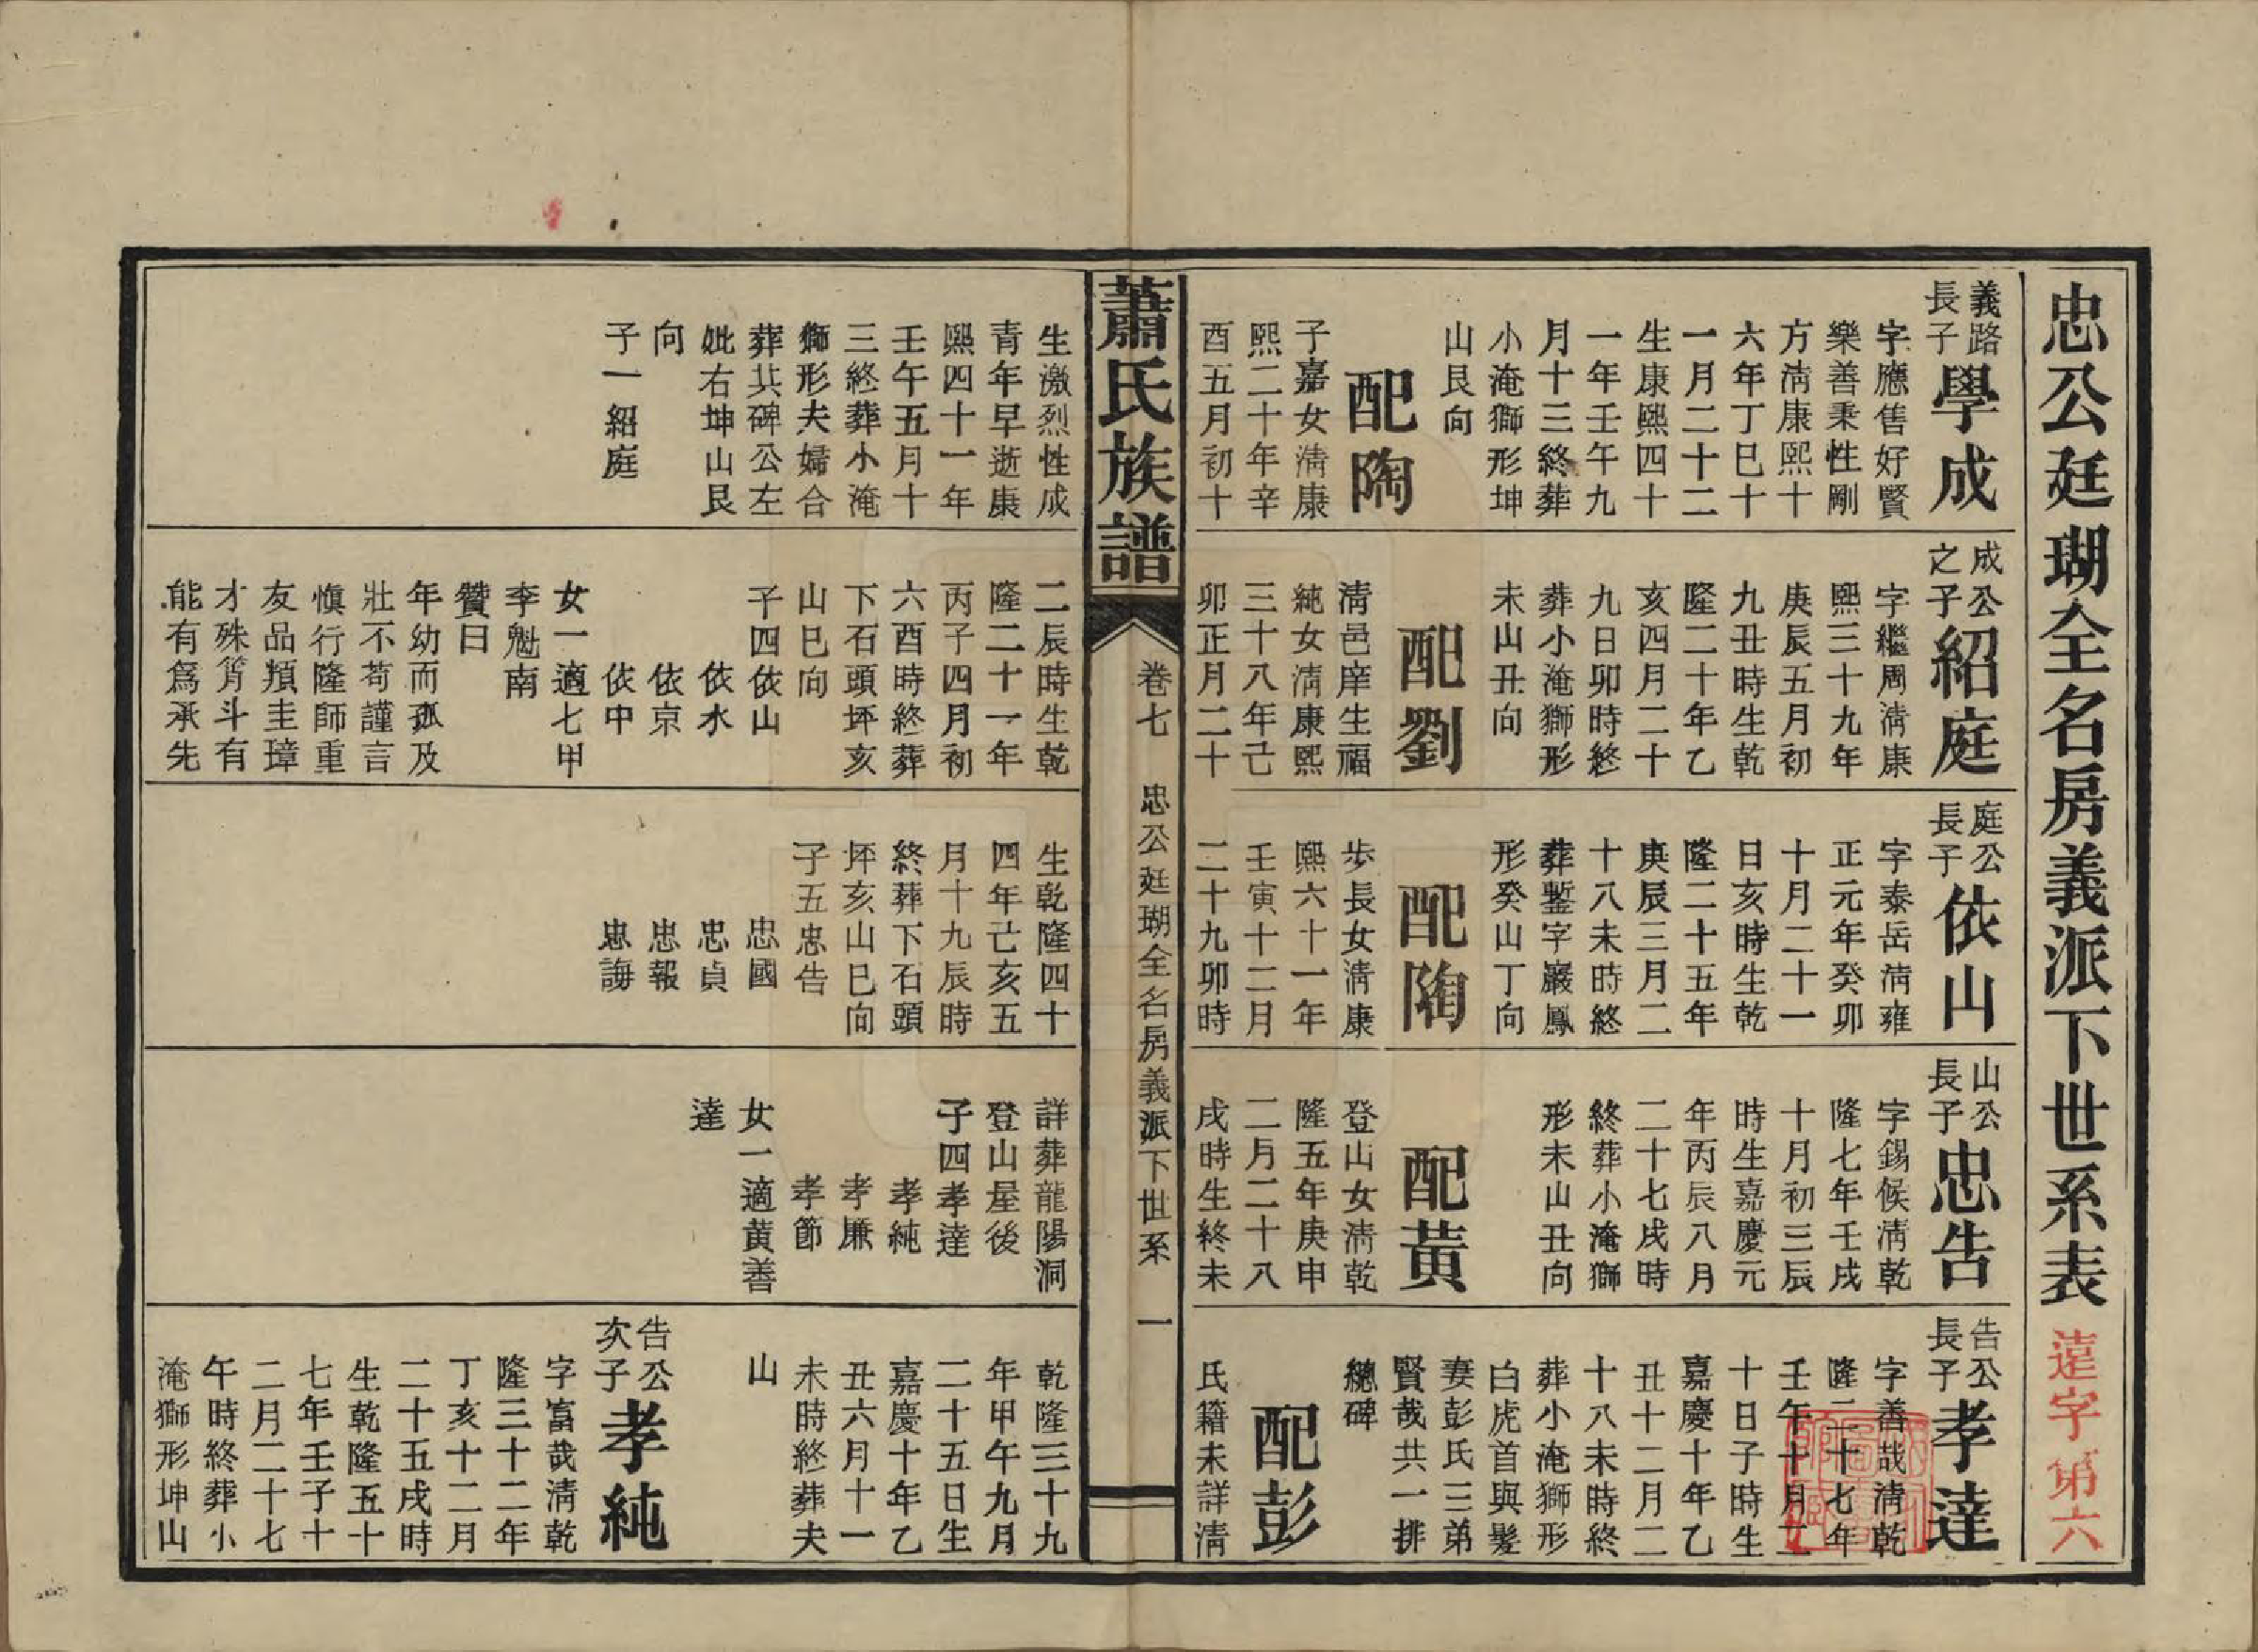 忠公廷瑚全名房義派下世系表
遠字第六
義路
長子
學成
字應售好賢
樂善秉性剛
方淸康熙十
六年丁巳十
一月二十二
生康熙四十
一年壬午九
月十三終葬
小淹獅形坤
山艮向
配陶
子嘉女淸康
熙二十年辛
酉五月初十
成公
之子
紹庭
字繼周淸康
熙三十九年
庚辰五月初
九丑時生乾
隆二十年乙
亥四月二十
九日卯時終
葬小淹獅形
未山丑向
配劉
淸邑庠生福
純女淸康熙
三十八年己
卯正月二十
庭公
長子
依山
字泰岳淸雍
正元年癸卯
十月二十一
日亥時生乾
隆二十五年
庚辰三月二
十八未時終
葬鏨字巖鳳
形癸山丁向
配陶
步長女淸康
熙六十一年
壬寅十二月
二十九卯時
山公
長子
忠告
字錫候淸乾
隆七年壬戌
十月初三辰
時生嘉慶元
年丙辰八月
二十七戌時
終葬小淹獅
形未山丑向
配黃
登山女淸乾
隆五年庚申
二月二十八
戌時生終未
告公
長子
孝達
字善哉淸乾
隆二十七年
壬午十月二
十日子時生
嘉慶十年乙
丑十二月二
十八未時終
葬小淹獅形
白虎首與髮
妻彭氏三弟
賢哉共一排
總碑
配彭
氏籍未詳淸
蕭氏族譜
卷七
忠公廷瑚全名房義派下世系
一
生激烈性成
青年早逝康
熙四十一年
壬午五月十
三終葬小淹
獅形夫婦合
葬共碑公左
妣右坤山艮
向
子一紹庭
二辰時生乾
隆二十一年
丙子四月初
六酉時終葬
下石頭坪亥
山巳向
子四依山
依水
依京
依中
女一適七甲
李魁南
贊曰
年幼而孤及
壯不苟謹言
愼行隆師重
友品類圭璋
才殊筲斗有
能有爲承先
生乾隆四十
四年己亥五
月十九辰時
終葬下石頭
坪亥山巳向
子五忠告
忠國
忠貞
忠報
忠誨
詳葬龍陽洞
登山屋後
子四孝達
孝純
孝廉
孝節
女一適黃善
達
乾隆三十九
年甲午九月
二十五日生
嘉慶十年乙
丑六月十一
未時終葬夫
山
告公
次子
孝純
字富哉淸乾
隆三十二年
丁亥十二月
二十五戌時
生乾隆五十
七年壬子十
二月二十七
午時終葬小
淹獅形坤山